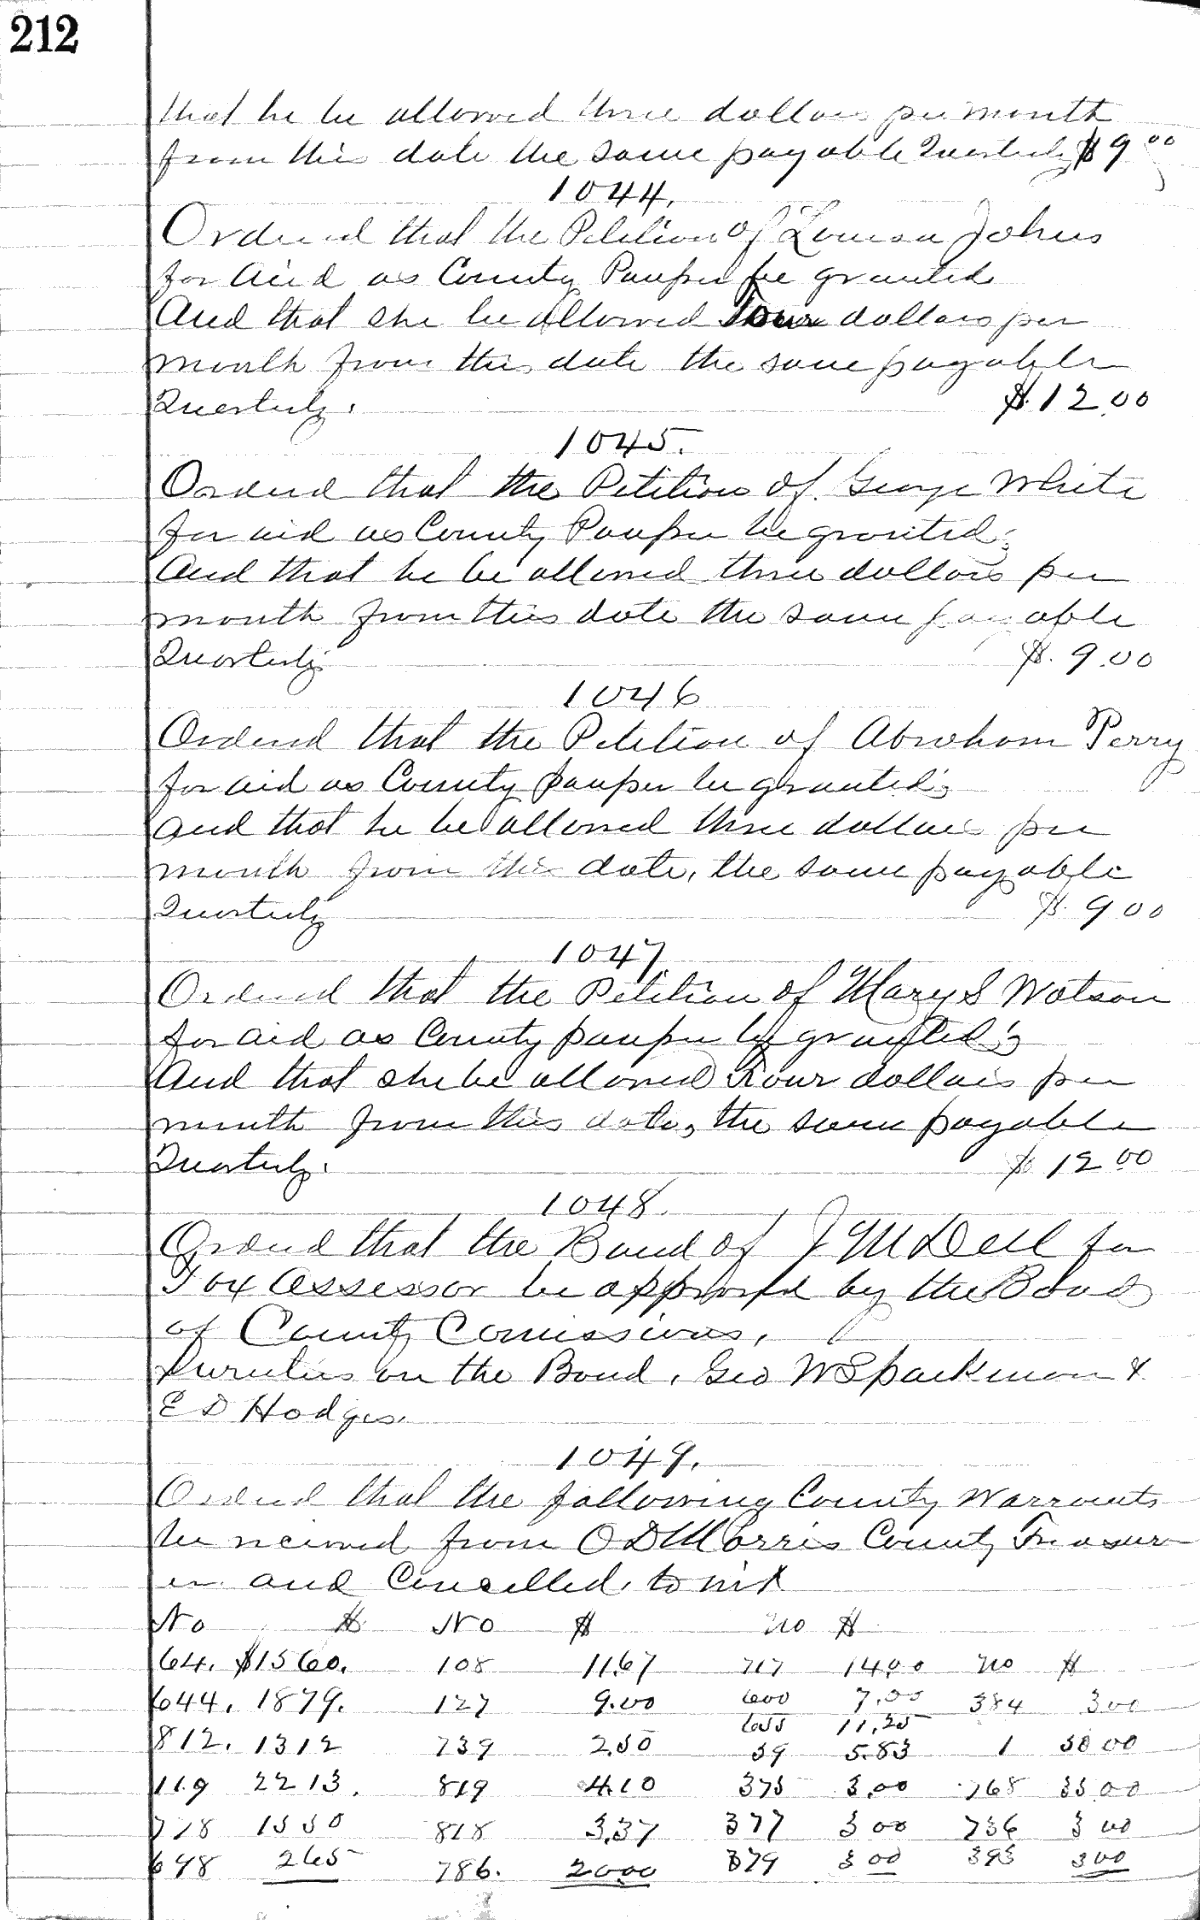 212
that he be allowed three dollars per month
from this date the same payable Quarterly $9.00
1044.
Ordered that the Petition of Louisa Johns
for Aid as County Pauper be granted
And that she be allowed Four dollars per
month from this date the same payable
Quarterly. $12.00
1045.
Ordered that the Petition of George White
for aid as County Pauper be granted;
And that he be allowed three dollars per
month from this date the same payable
Quarterly $.9.00
1046
Ordered that the Petition of Abraham Perry
for aid as County pauper be granted;
and that he be allowed three dollars per
month from this date, the same payable
Quarterly $.9 00
1047
Ordered that the Petition of Mary S Watson
for aid as County pauper be granted;
And that she be allowed Four dollars per
month from this date, the same payable
Quarterly. $ 12 00
1048.
Ordered that the Bond of J M Dell for
Tax Assessor be approved by the Board
of County Comissioners,
Sureties on the Bond, Geo W Sparkman &
E D Hodges.
1049.
Ordered that the following County Warrants
be received from O D Morris County Treasur
er and Cancelled, to wit
No $ No $ no $
64. $1560. 108 11.67 717 14.00 no $
644. 1879. 127 9.00 600 7.55 384 3 00
655 11.25
812. 1312 739 2.50 59 5.83 1 50 00
119 2213. 819 4.10 375 3.00 768 35 00
778 1550 818 3.37 377 3 00 736 3 00
698 265 786. 2000 379 3 00 393 3 00